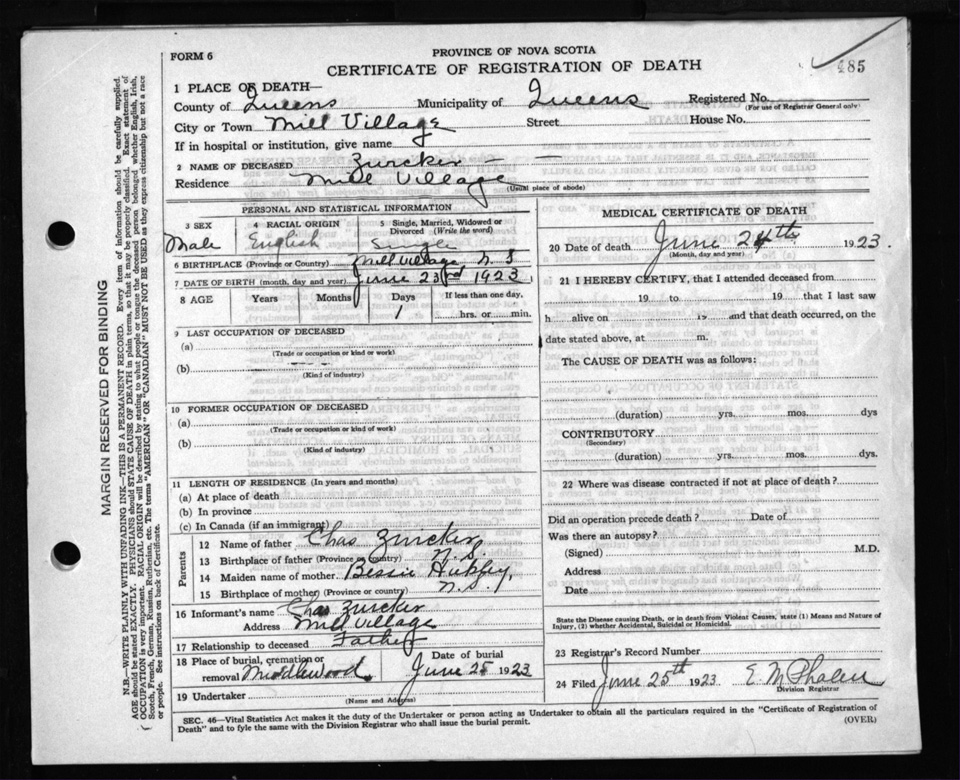 FORM 6
PROVINCE OF NOVA SCOTIA
CERTIFICATE OF REGISTRATION OF DEATH
485
1 PLACE OF DEATH—
County of Queens Municipality of Queens Registered No.
(For use of Registrar General only)
City or Town Mill Village Street House No.
If in hospital or institution, give name
2 NAME OF DECEASED Zwicker — —
Residence Mill Village
(Usual place of abode)
PERSONAL AND STATISTICAL INFORMATION
3 SEX 4 RACIAL ORIGIN 5 Single, Married, Widowed or Divorced (Write the word)
Male English Single
6 BIRTHPLACE (Province or Country) Mill Village N. S
7 DATE OF BIRTH (month, day and year) June 23rd 1923
8 AGE Years Months Days If less than one day,
1 hrs. or min.
9 LAST OCCUPATION OF DECEASED
(a)
(Trade or occupation or kind or work)
(b)
(Kind of industry)
10 FORMER OCCUPATION OF DECEASED
(a)
(Trade or occupation or kind of work)
(b)
(Kind of industry)
11 LENGTH OF RESIDENCE (In years and months)
(a) At place of death
(b) In province
(c) In Canada (if an immigrant)
Parents
12 Name of father Chas Zwicker
13 Birthplace of father (Province or country) N. S.
14 Maiden name of mother Bessie
15 Birthplace of mother (Province or country) N. S.
16 Informant's name Chas Zwicker
Address Mill Village
17 Relationship to deceased Father
18 Place of burial, cremation or removal Middlewood Date of burial June 25 1923
19 Undertaker
(Name and Address)
MEDICAL CERTIFICATE OF DEATH
20 Date of death June 24th 1923.
(Month, day and year)
21 I HEREBY CERTIFY, that I attended deceased from
19 to 19 that I last saw
h alive on 19 and that death occurred, on the
date stated above, at m.
The CAUSE OF DEATH was as follows:
(duration) yrs. mos. dys
CONTRIBUTORY
(Secondary)
(duration) yrs. mos. dys.
22 Where was disease contracted if not at place of death?
Did an operation precede death? Date of
Was there an autopsy?
(Signed) M.D.
Address
Date
State the Disease causing Death, or in death from Violent Causes, state (1) Means and Nature of
Injury, (2) whether Accidental, Suicidal or Homicidal.
23 Registrar's Record Number
24 Filed June 25th 1923 E. M Phalen
Division Registrar
SEC. 46—Vital Statistics Act makes it the duty of the Undertaker or person acting as Undertaker to obtain all the particulars required in the "Certificate of Registration of
Death" and to fyle the same with the Division Registrar who shall issue the burial permit. (OVER)
MARGIN RESERVED FOR BINDING
N.B.—WRITE PLAINLY WITH UNFADING INK—THIS IS A PERMANENT RECORD. Every item of information should be carefully supplied.
AGE should be stated EXACTLY. PHYSICIANS should STATE CAUSE OF DEATH in plain terms, so that it may be properly classified. Exact statement of
OCCUPATION is very important. RACIAL ORIGIN will be described by stating to what people or tongue the deceased person belonged whether English, Irish,
Scotch, French, German, Russian, Ruthenian, etc. The terms "AMERICAN" OR "CANADIAN" MUST NOT BE USED as they express citizenship but not a race
or people. See instructions on back of Certificate.